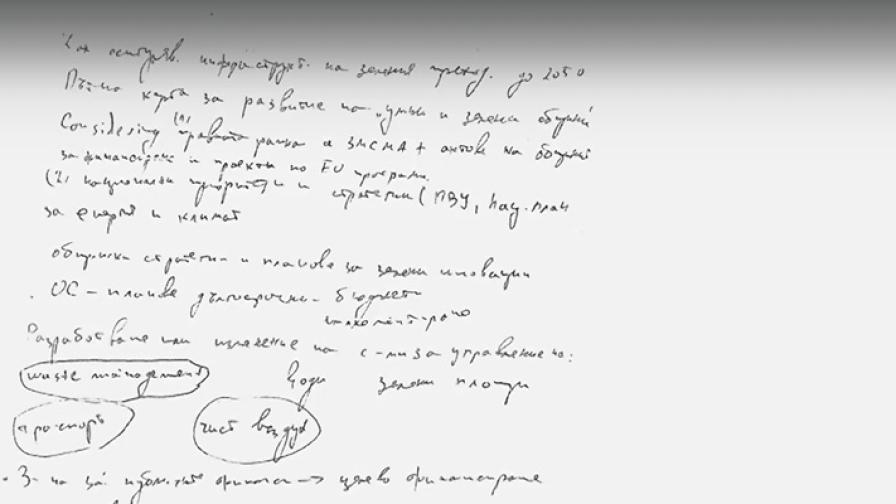 инфраструкт. на зеления преход. до 2050
Пътна карта за развитие на "умни и зелени общини"
Considering (1) правната рамка а ЗМСМА + актове на общини
за финансиране и проекти по EU програми.
(2) национални приоритети и стратегии (ПВУ, Нац. план
за енерг и климат
общински стратегии и планове за зелени иновации
ОС - планове дългосрочни - бюджет
Разработване или изменение на с-ми за управление на:
waste management води зелени площи
транспорт чист въздух
З- на за публичните финанси → целево финансиране